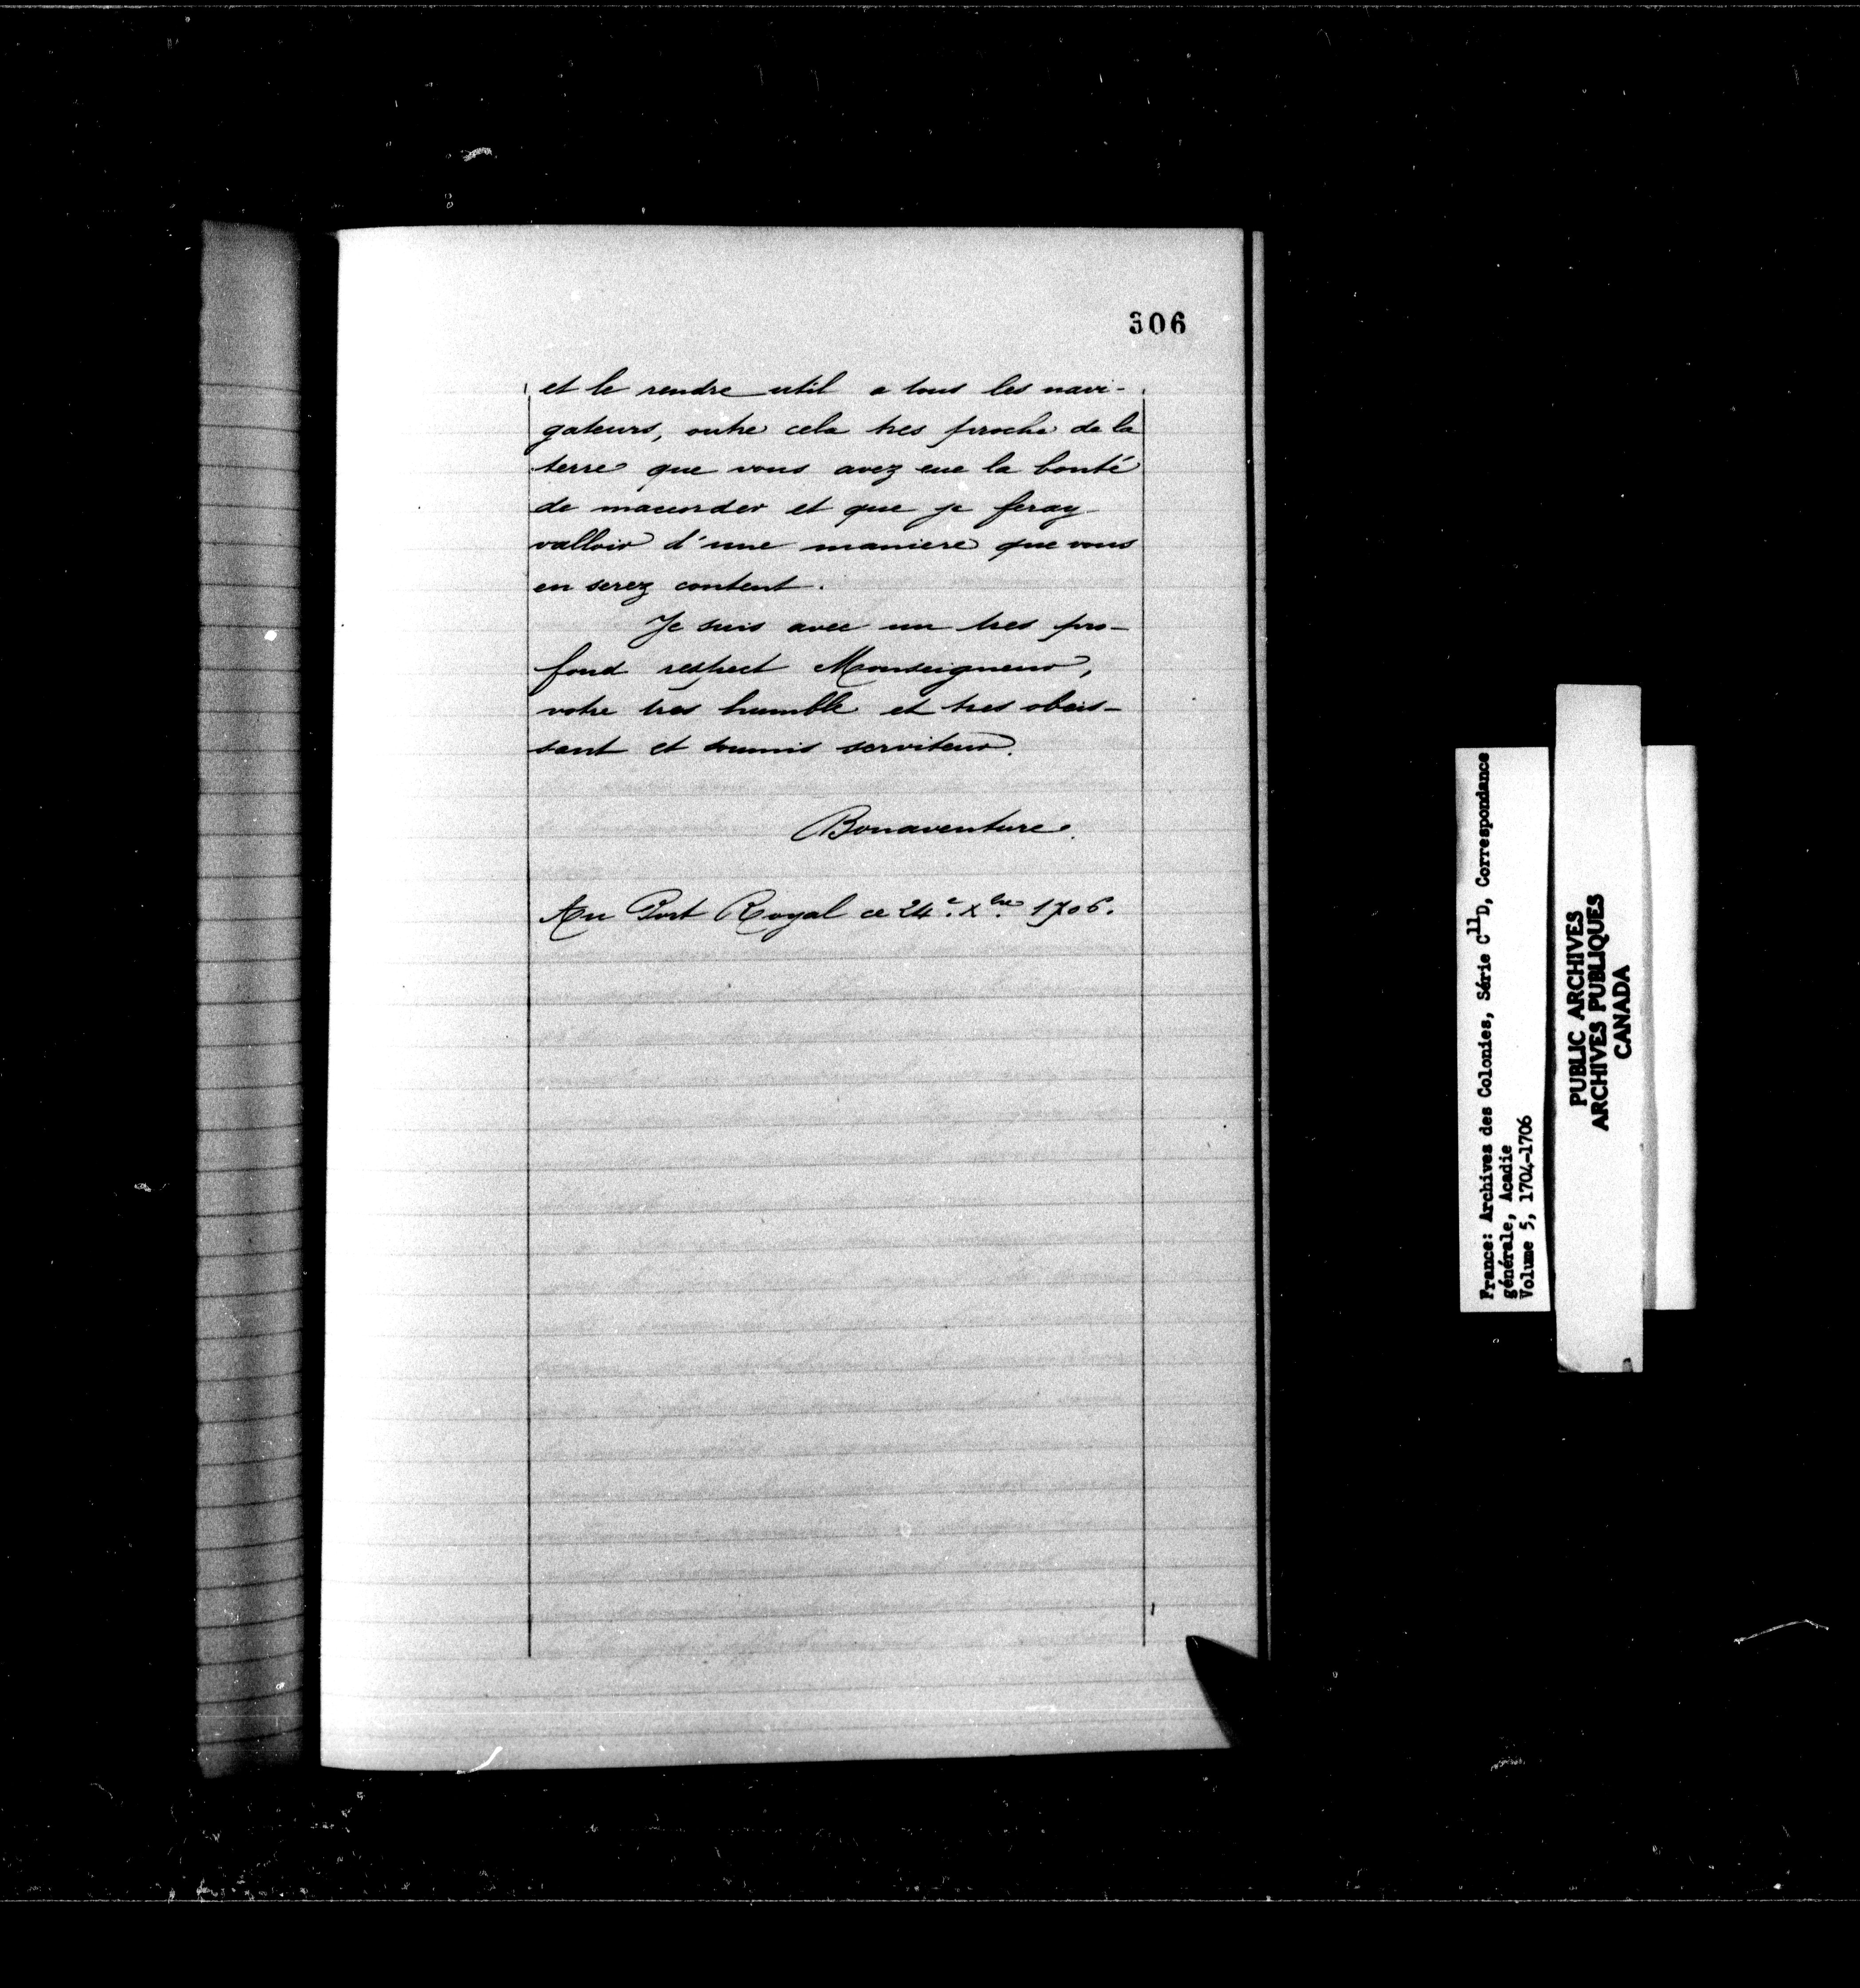 306
et le rendre util a tous les navi-
gateurs, outre cela tres proche de la
terre que vous avez eue la bonté
de maccorder et que je feray
valloir d'une maniere que vous
en serez content.
Je suis avec un tres pro-
fond respect Monseigneur,
votre tres humble et tres obeis-
sant et soumis serviteur.
Bonaventure.
Au Port Royal ce 24e. Xbre. 1706.
France: Archives des Colonies, Série C11D, Correspondance
générale, Acadie
Volume 5, 1704-1706
PUBLIC ARCHIVES
ARCHIVES PUBLIQUES
CANADA